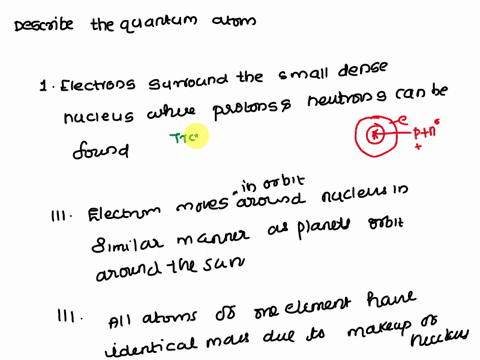 Describe the quantum atom
I. Electrons surround the small dense
nucleus where protons & neutrons can be
found
e
p+n°
+
III. Electrum moves in orbit around nucleus in
similar manner as planets orbit
around the sun
III. All atoms of one element have
identical mass due to makeup of
nucleus